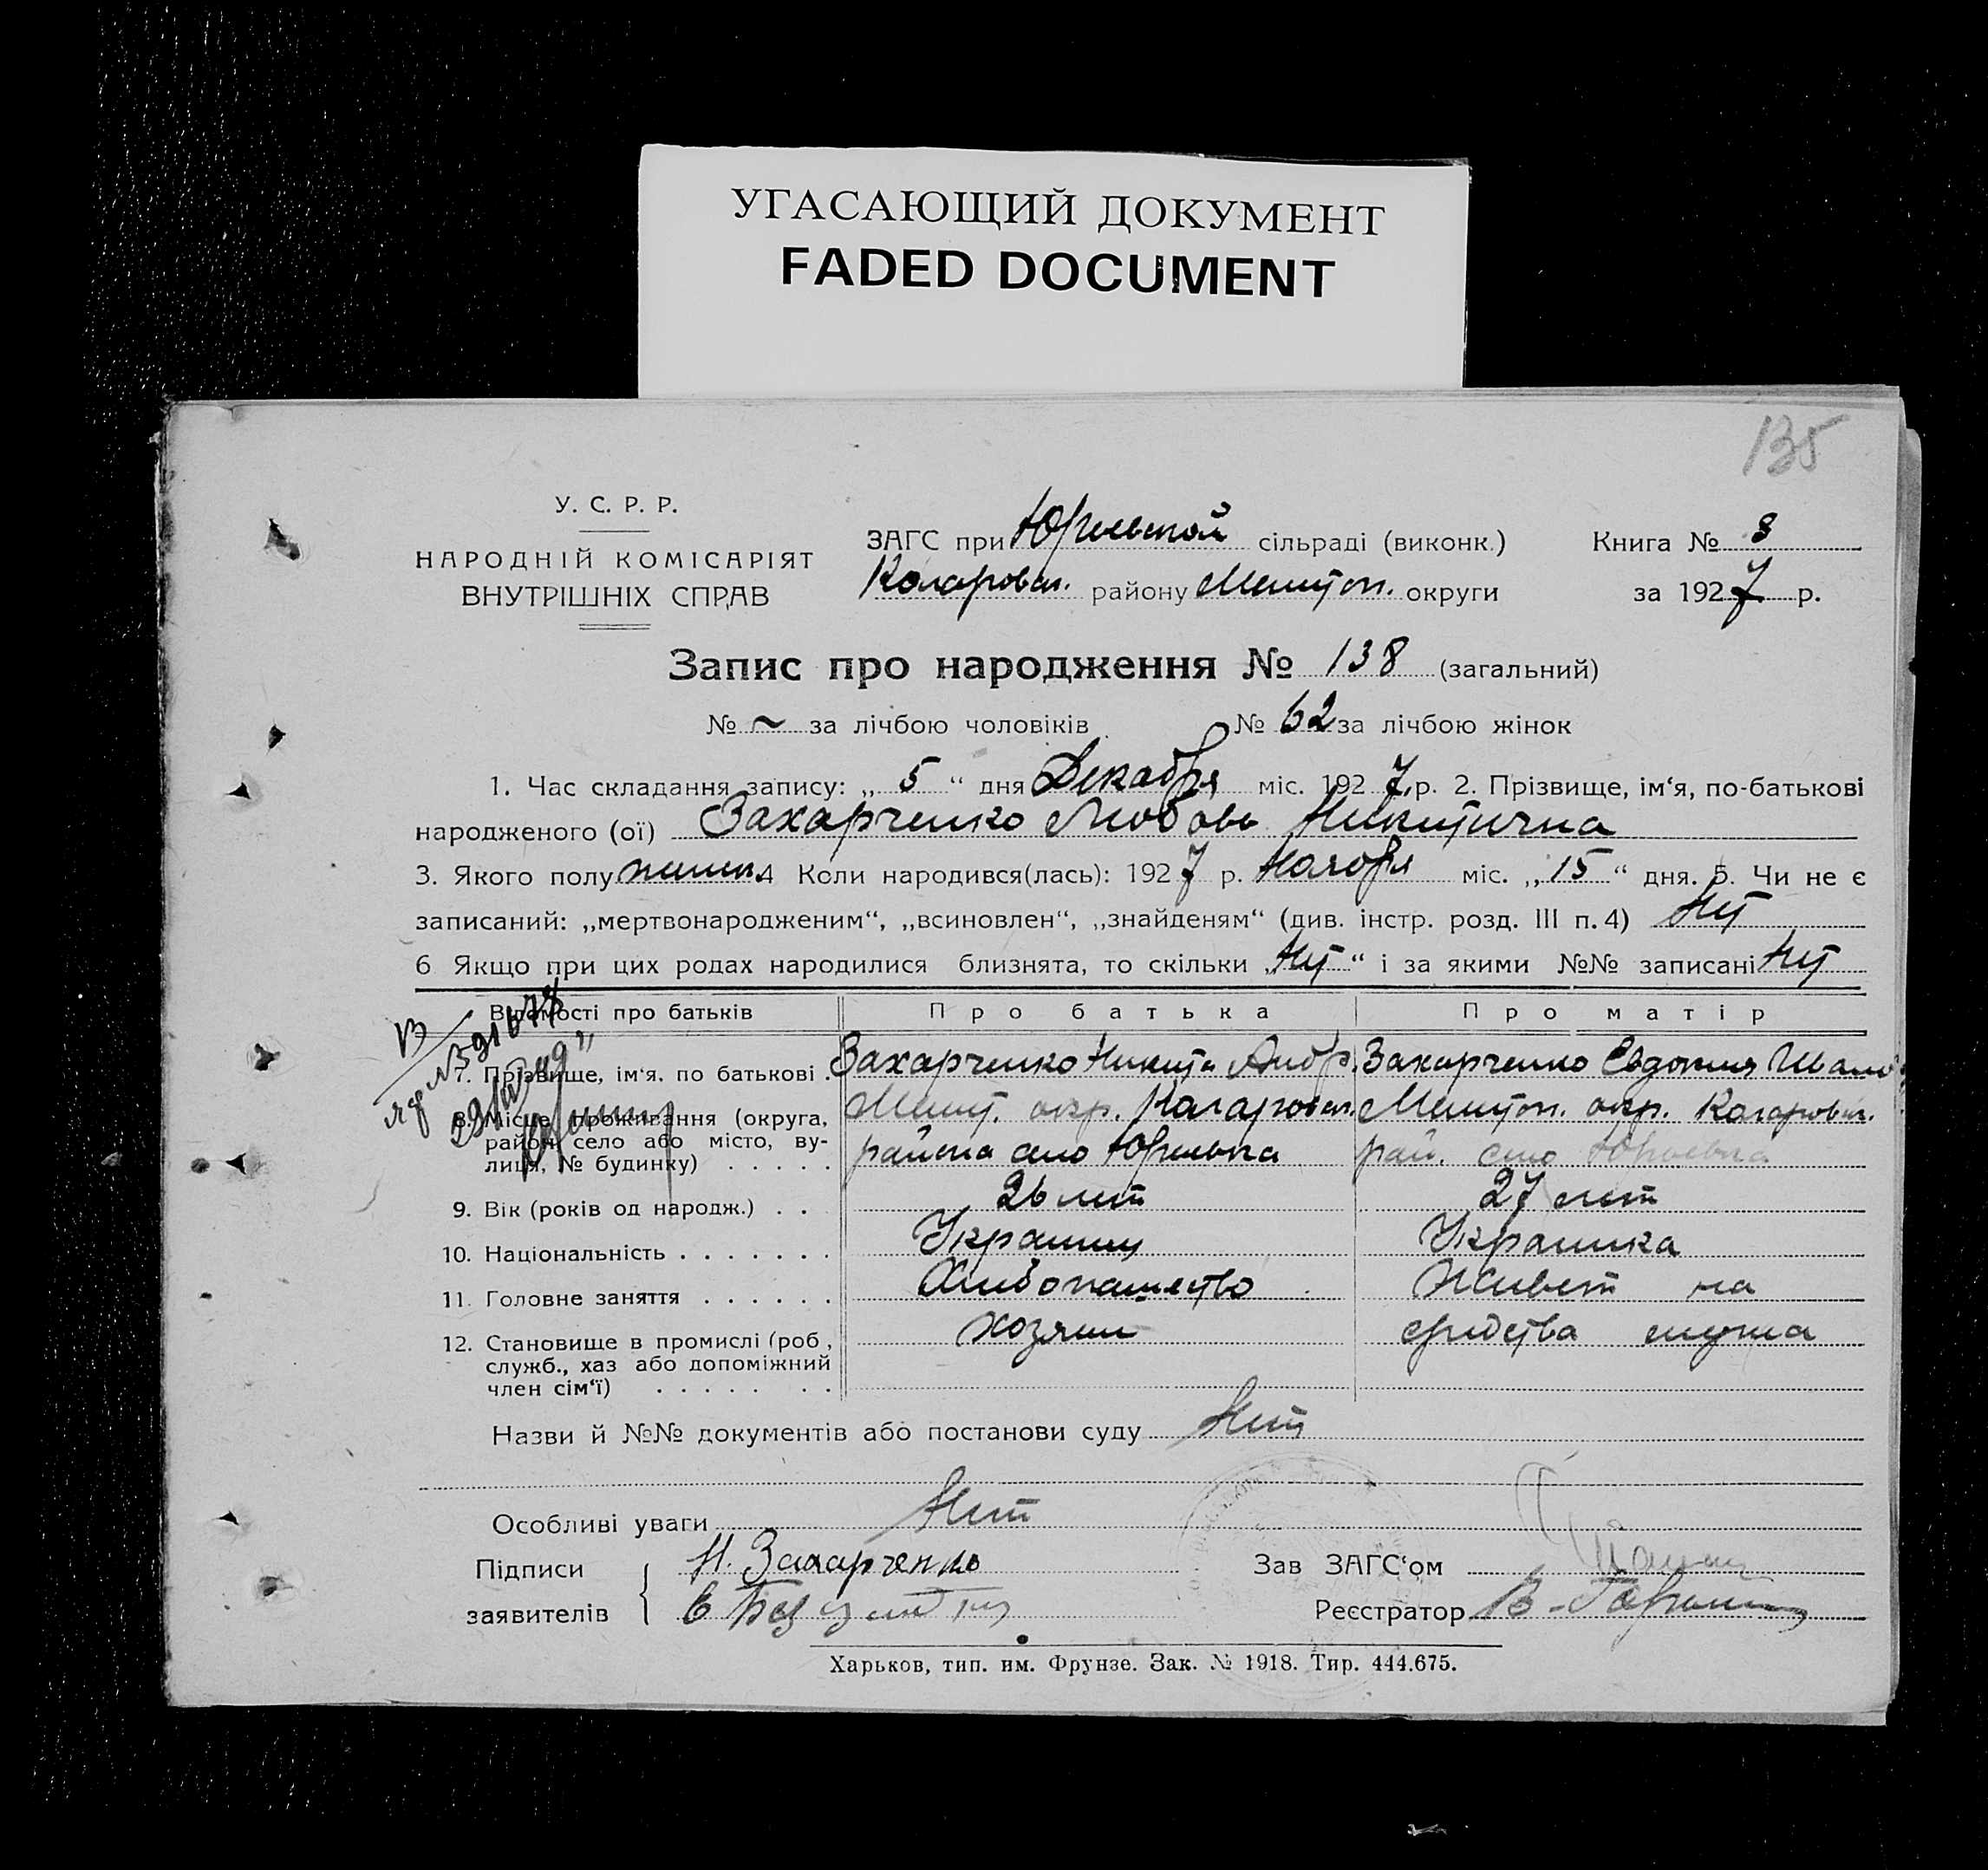 УГАСАЮЩИЙ ДОКУМЕНТ
FADED DOCUMENT
135
У. С. Р. Р.
НАРОДНІЙ КОМІСАРІЯТ
ВНУТРІШНІХ СПРАВ
ЗАГС при Юрьевской сільраді (виконк.)
Коларовск. району Мелитоп. округи
Книга № 3
за 1927 р.
Запис про народження № 138 (загальний)
№ ~ за лічбою чоловіків № 62 за лічбою жінок
1. Час складання запису: „ 5 “ дня Декабря міс. 1927 р. 2. Прізвище, ім‘я, по-батькові
народженого (ої) Захарченко Любовь Никитична
3. Якого полу женск. 4 Коли народився(лась): 1927 р. Ноября міс. „15“ дня. 5. Чи не є
записаний: „мертвонародженим“, „всиновлен“, „знайденям“ (див. інстр. розд. III п. 4) Нет
6 Якщо при цих родах народилися близнята, то скільки „Нет“ і за якими №№ записані Нет
Відомості про батьків Про батька Про матір
7. Прізвище, ім‘я, по батькові . Захарченко Никита Андр. Захарченко Евдокия Иван
8. Місце проживання (округа, Мелит. окр. Коларовск. Мелитоп. окр. Коларовск.
район село або місто, ву- района село Юрьевка рай. село Юрьевка
лиця, № будинку) . . . . .
9. Вік (років од народж.) . . 26 лет 27 лет
10. Національність . . . . . . . Украинец Украинка
11. Головне заняття . . . . . . Хлебопашество Живет на
12. Становище в промислі (роб, хозяин средства мужа
служб., хаз або допоміжний
член сім‘ї) . . . . . . .
Назви й №№ документів або постанови суду Нет
Особливі уваги Нет
Підписи Н. Захарченко Зав ЗАГС‘ом
заявителів Реєстратор В.
Харьков, тип. им. Фрунзе. Зак. № 1918. Тир. 444.675.